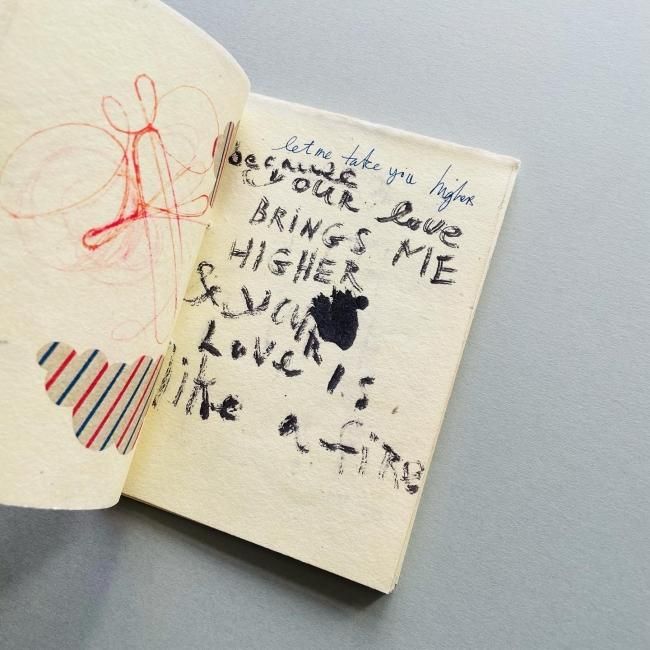 let me take you higher
because
your love
BRINGS ME
HIGHER
& your
Love is
like a fire